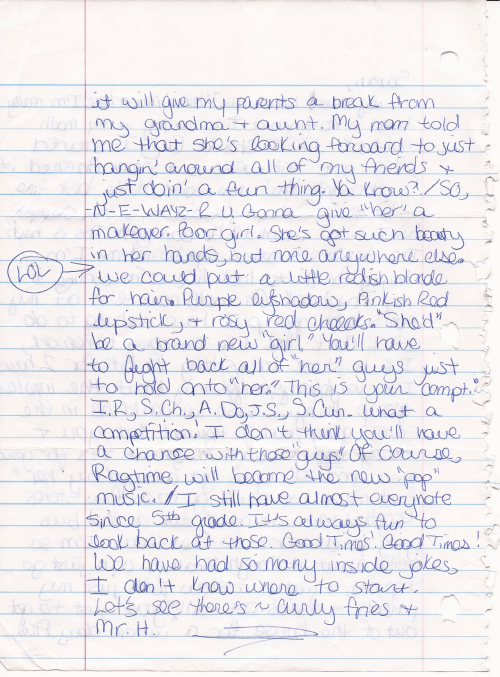 it will give my parents a break from
my grandma + aunt. My mom told
me that she's looking forward to just
hangin' around all of my friends +
just doin' a fun thing. Ya Know?! /SO,
-N-E-WAYZ-R U Gonna give "her" a
makeover. Poor girl. She's got such beauty
in her hands, but none anywhere else.
LOL
we could put a little redish blonde
for hair. Purple eyshadow, Pinkish Red
lipstick, + rosy red cheeks. "She'd"
be a brand new "girl." You'll have
to fight back all of "her" guys just
to hold onto "her." This is your compt."
I.R., S.Ch., A.Do, J.S., S.Cun. what a
competition! I don't think you'll have
a chance with those "guys" Of Course,
Ragtime will become the new "pop"
music. // I still have almost everynote
since 5th grade. It's always fun to
look back at those. Good Times! Good Times!
We have had so many inside jokes,
I don't know where to start.
Let's see there's ~ curly fries +
Mr. H.